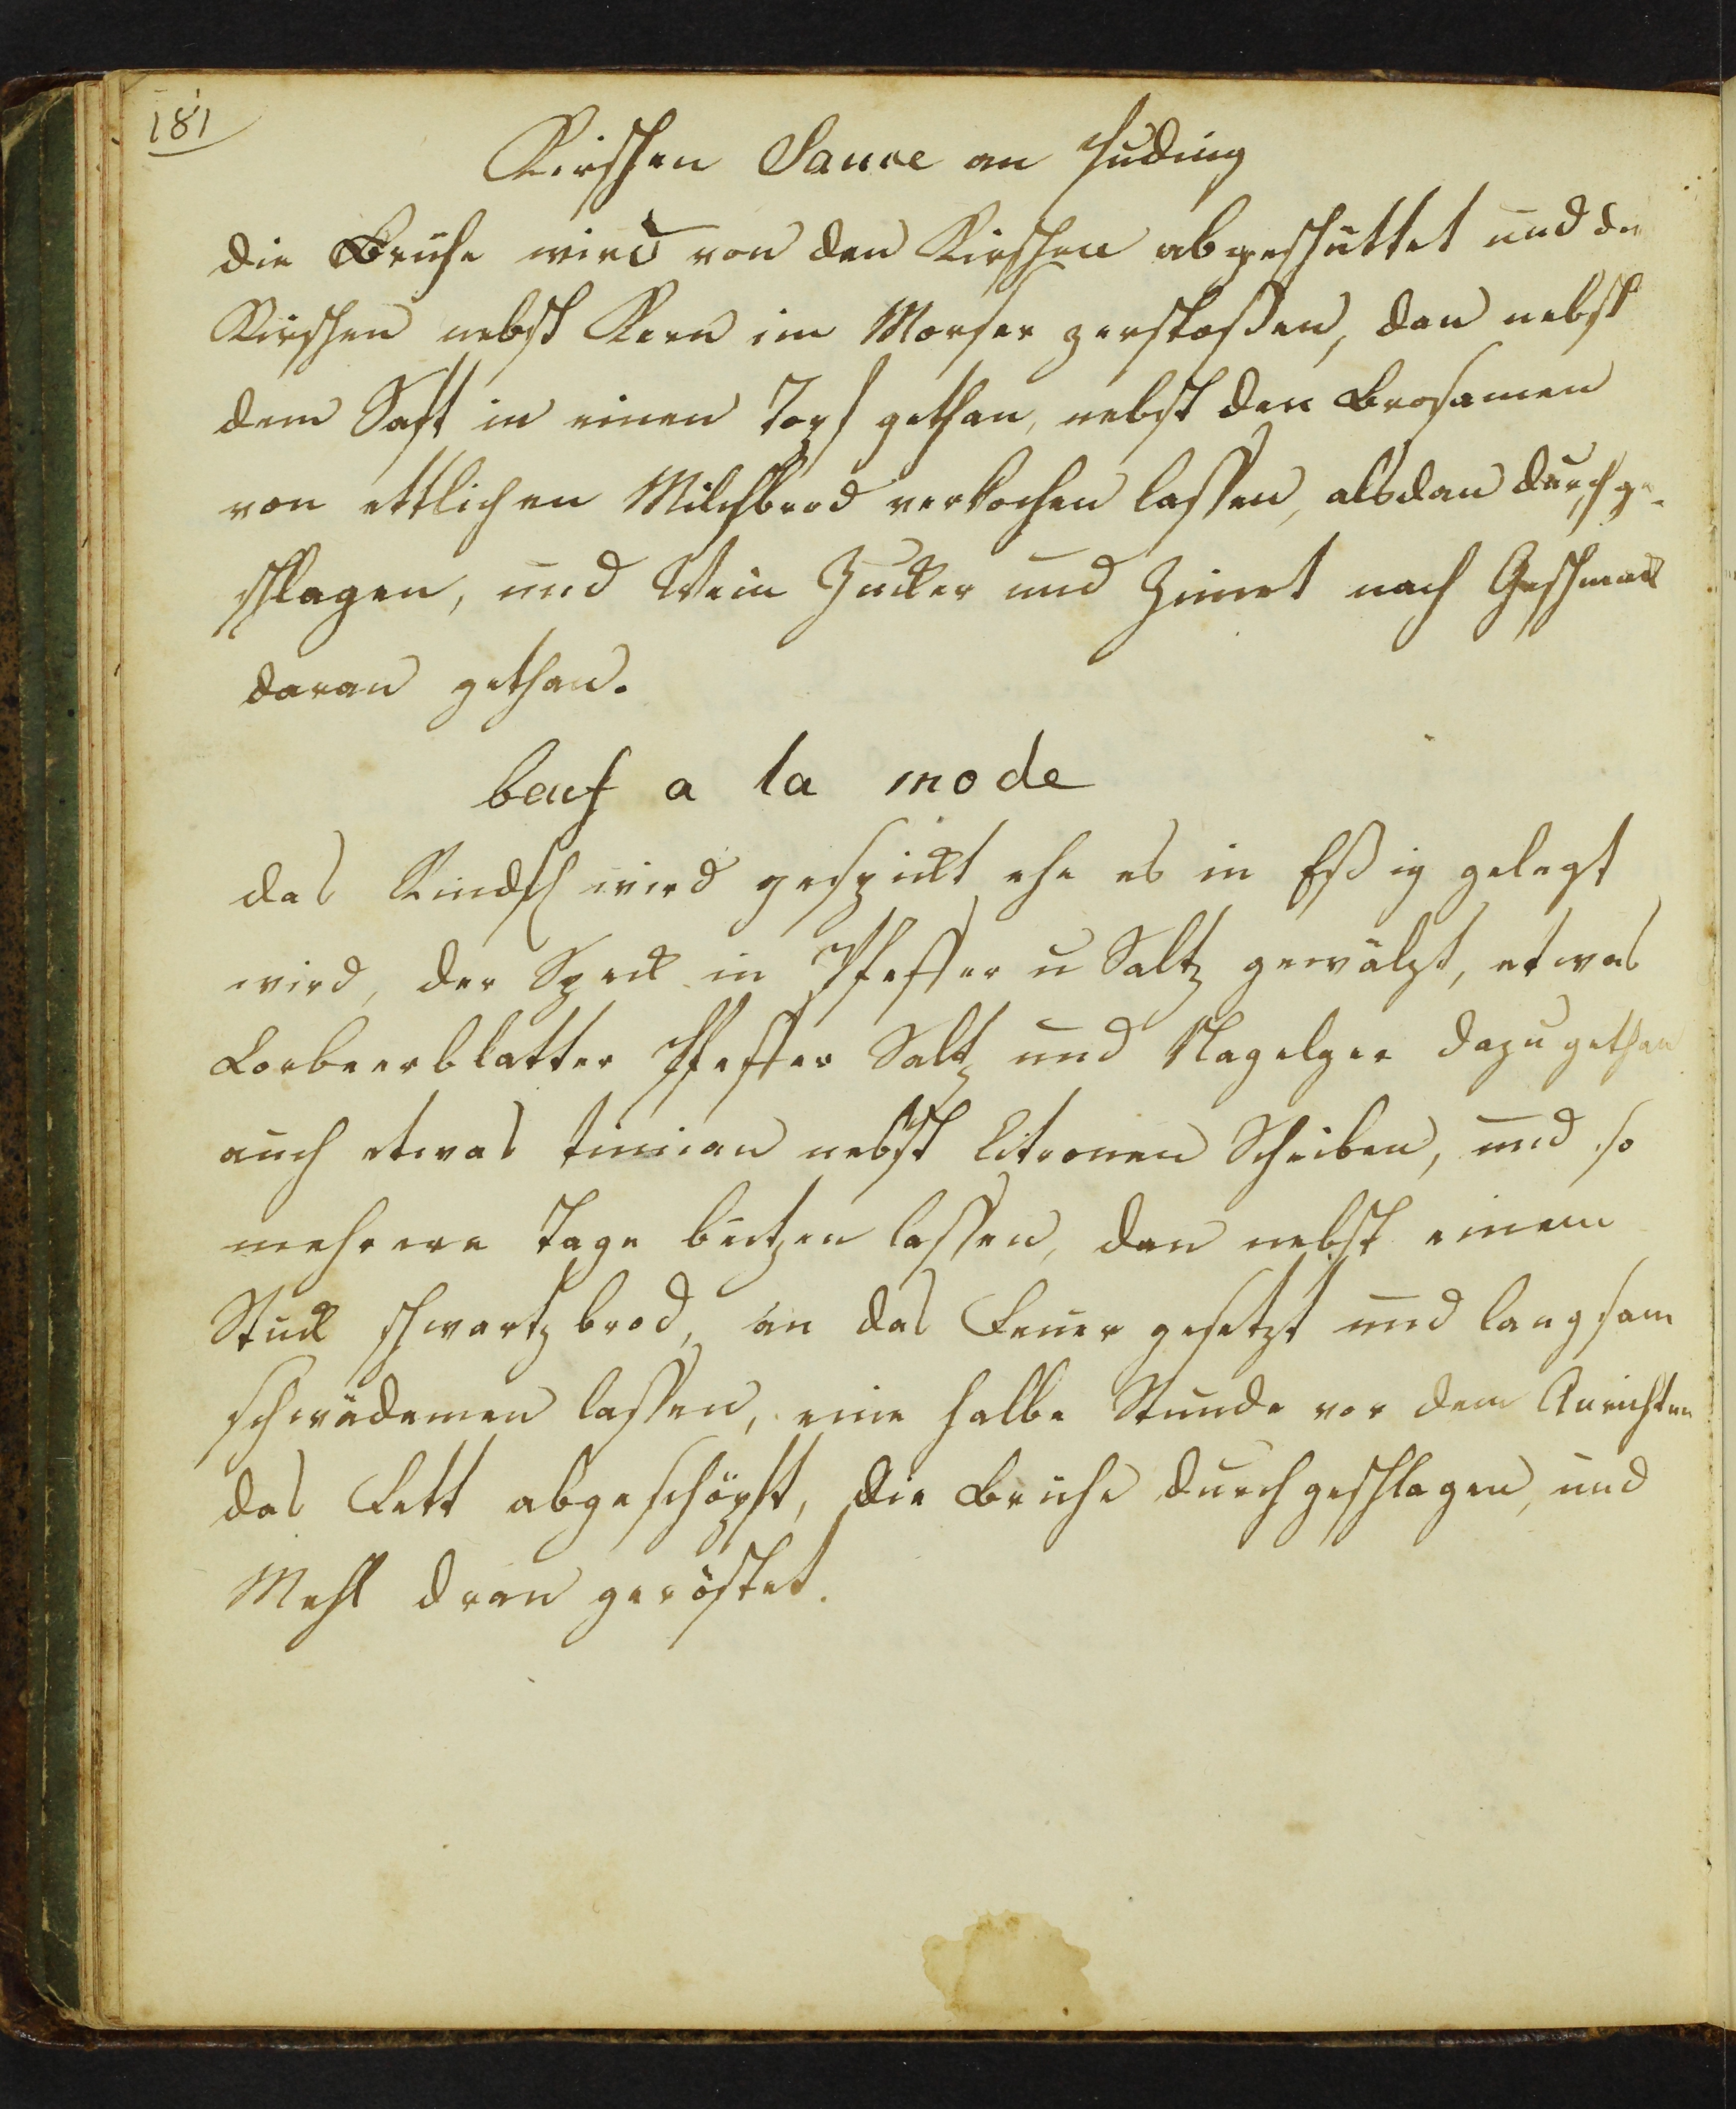 181
Kirschen Sauce an Puding
die Brühe wird von den Kirschen abgeschüttet und die
Kirschen nebst Kern im Morser zerstoßen, dan nebst
dem Saft in einen Topf gethan, nebst den Brosamen
von ettlichen Milchbrod verkochen lassen, alsdan durchge-
schlagen, und Wein Zucker und Zimet nach Geschmack
daran gethan.
beuf a la mode
das Rindfl wird gespickt ehe es in Eßig gelegt
wird, der Speck in Pfeffer u Saltz gewälzt, etwas
Lorbeerblatter Pfeffer Saltz und Nagelger dazu gethan
auch etwas timian nebst Citronen Scheiben, und so
mehrere Tage beitzen lassen, dan nebst einem
Stück schwartzbrod, an das Feuer gesetzt und langsam
schwädemen lassen, eine halbe Stunde vor dem Anrichten
das Fett abgeschöpft, die Brühe durchgeschlagen, und
Mehl dran geröstet.